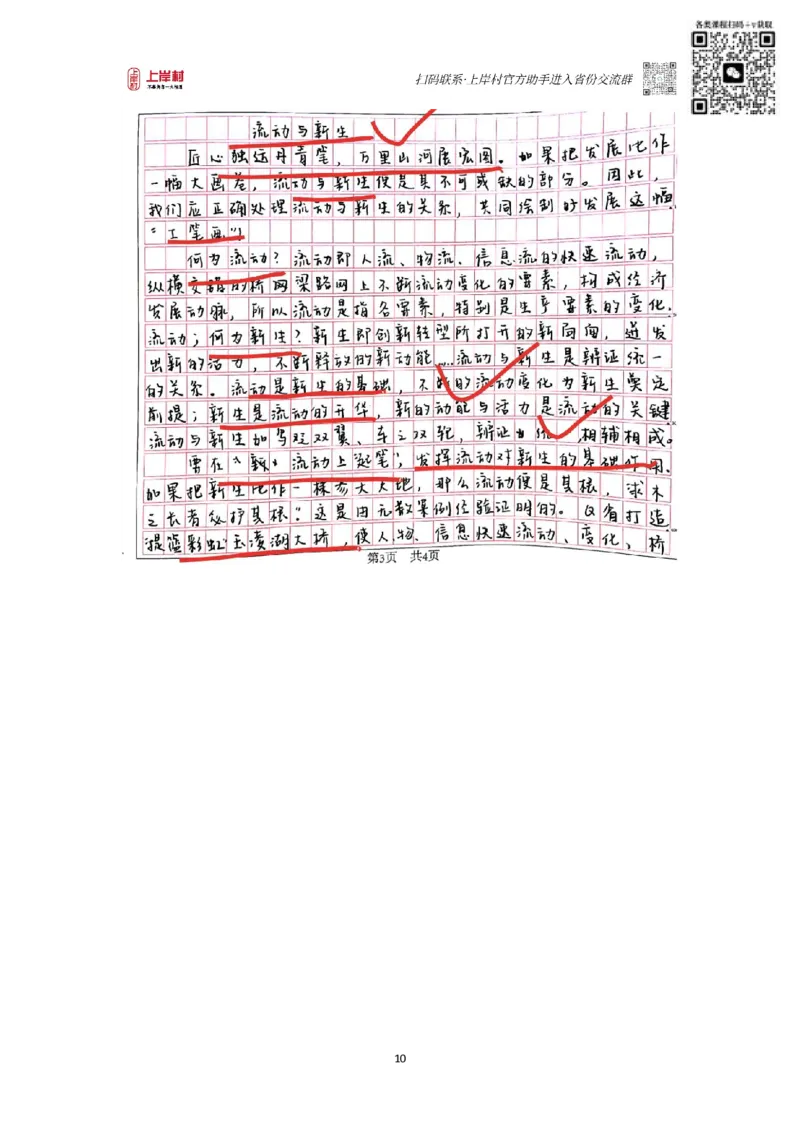 各类课程扫码+v获取
上岸村
扫码联系·上岸村官方助手进入省份交流群
流动与新生
匠心独运丹青笔，万里山河展宏图。如果把发展比作
一幅大画卷，流动与新生便是其不可或缺的部分。因此，
我们应正确处理流动与新生的关系，共同绘制的发展这幅
“工笔画”！
何为流动？流动即人流、物流、信息流的快速流动，
纵横交错的桥网梁路网上不断流动变化的要素，构成经济
发展动脉，所以流动是指各要素，特别是生产要素的变化、
流动；何为新生？新生即创新转型所打开的新局面，迸发
出新的活力，不断释放的新动能……流动与新生是辨证统一
的关系。流动是新生的基础，不断的流动变化为新生奠定
前提；新生是流动的升华，新的动能与活力是流动的关键，
流动与新生如鸟之双翼、车之双轮，辨证 相辅相成。
要在 流动上“起笔”，发挥流动对新生的基础作用。
如果把新生比作一棵参天大地，那么流动便是其根，求木
之长者必护其根”这是由无数案例经验证明的。只有打造
提篮彩虹玉凌湖大桥，使人、物、信息快速流动、变化，桥
第3页 共4页
10